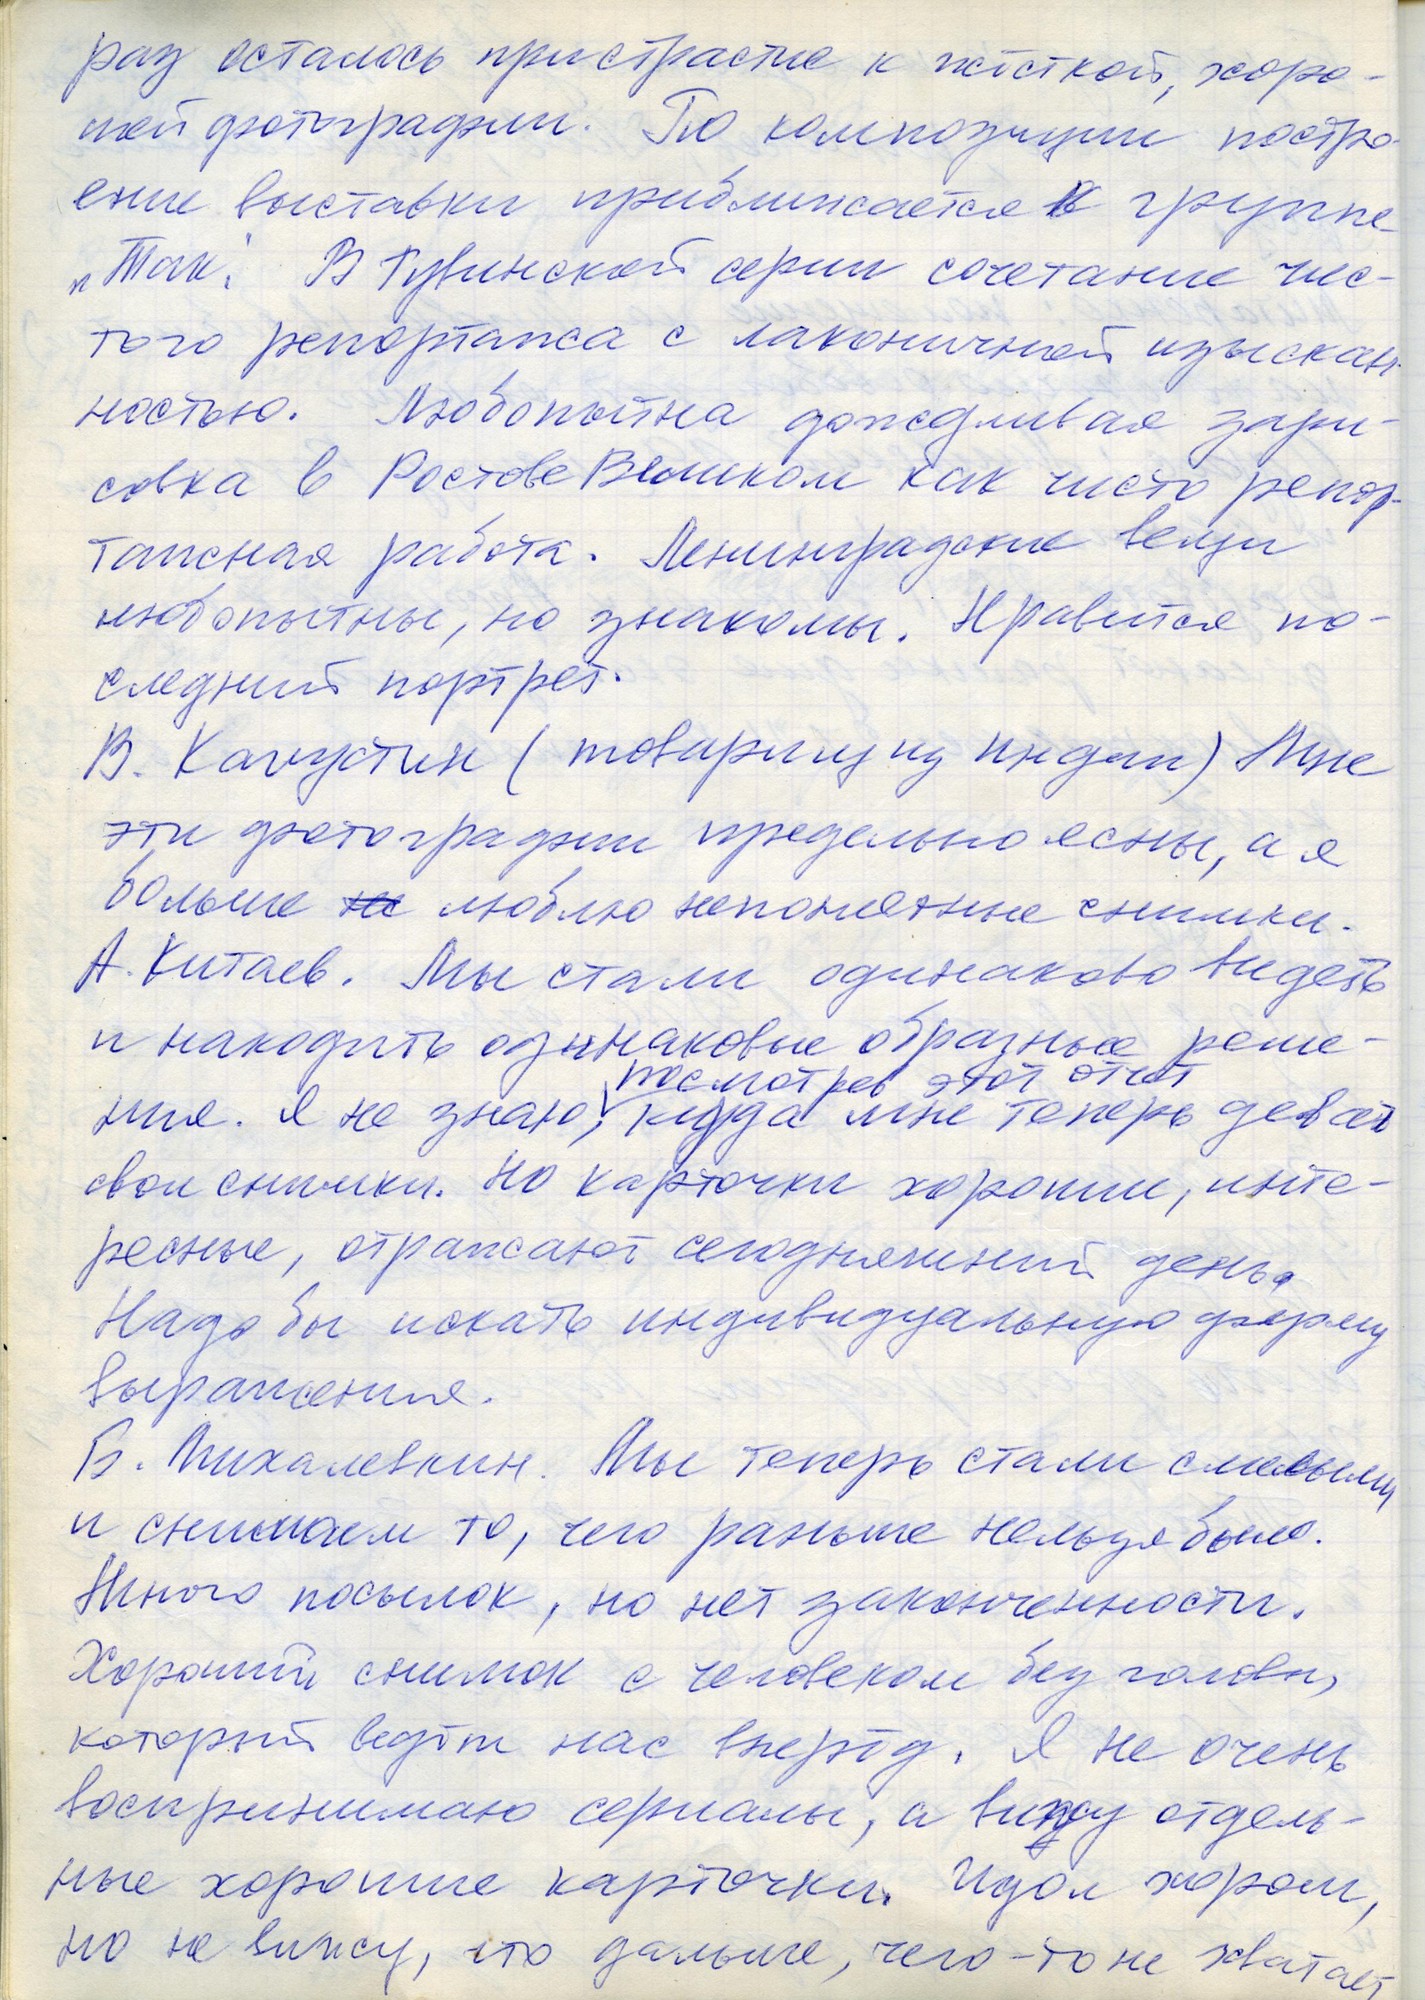 раз осталось пристрастие к жёсткой, хоро-
шей фотографии. По композиции постро-
ение выставки приближается к группе
„Так". В Тувинской серии сочетание чис-
того репортажа с лаконичной изыскан-
ностью. Любопытна дождливая зари-
совка в Ростове Великом как чисто репор-
тажная работа. Ленинградские вещи
любопытны, но знакомы. Нравится по-
следний портрет.
В. Капустин (товарищу из Индии) Мне
эти фотографии предельно ясны, а я
больше не люблю непонятные снимки.
А. Китаев. Мы стали одинаково видеть
и находить одинаковые образные реше-
посмотрев этот отчёт
ния. Я не знаю, куда мне теперь девать
свои снимки. Но карточки хорошие, инте-
ресные, отражают сегодняшний день.
Надо бы искать индивидуальную форму
выражения.
Б. Михалевкин. Мы теперь стали смелыми
и снимаем то, чего раньше нельзя было.
Много посылок, но нет законченности.
Хороший снимок с человеком без головы,
который ведёт нас вперёд. Я не очень
воспринимаю сериалы, а вижу отдель-
ные хорошие карточки. Идол хорош,
но не вижу, что дальше, чего-то не хватает